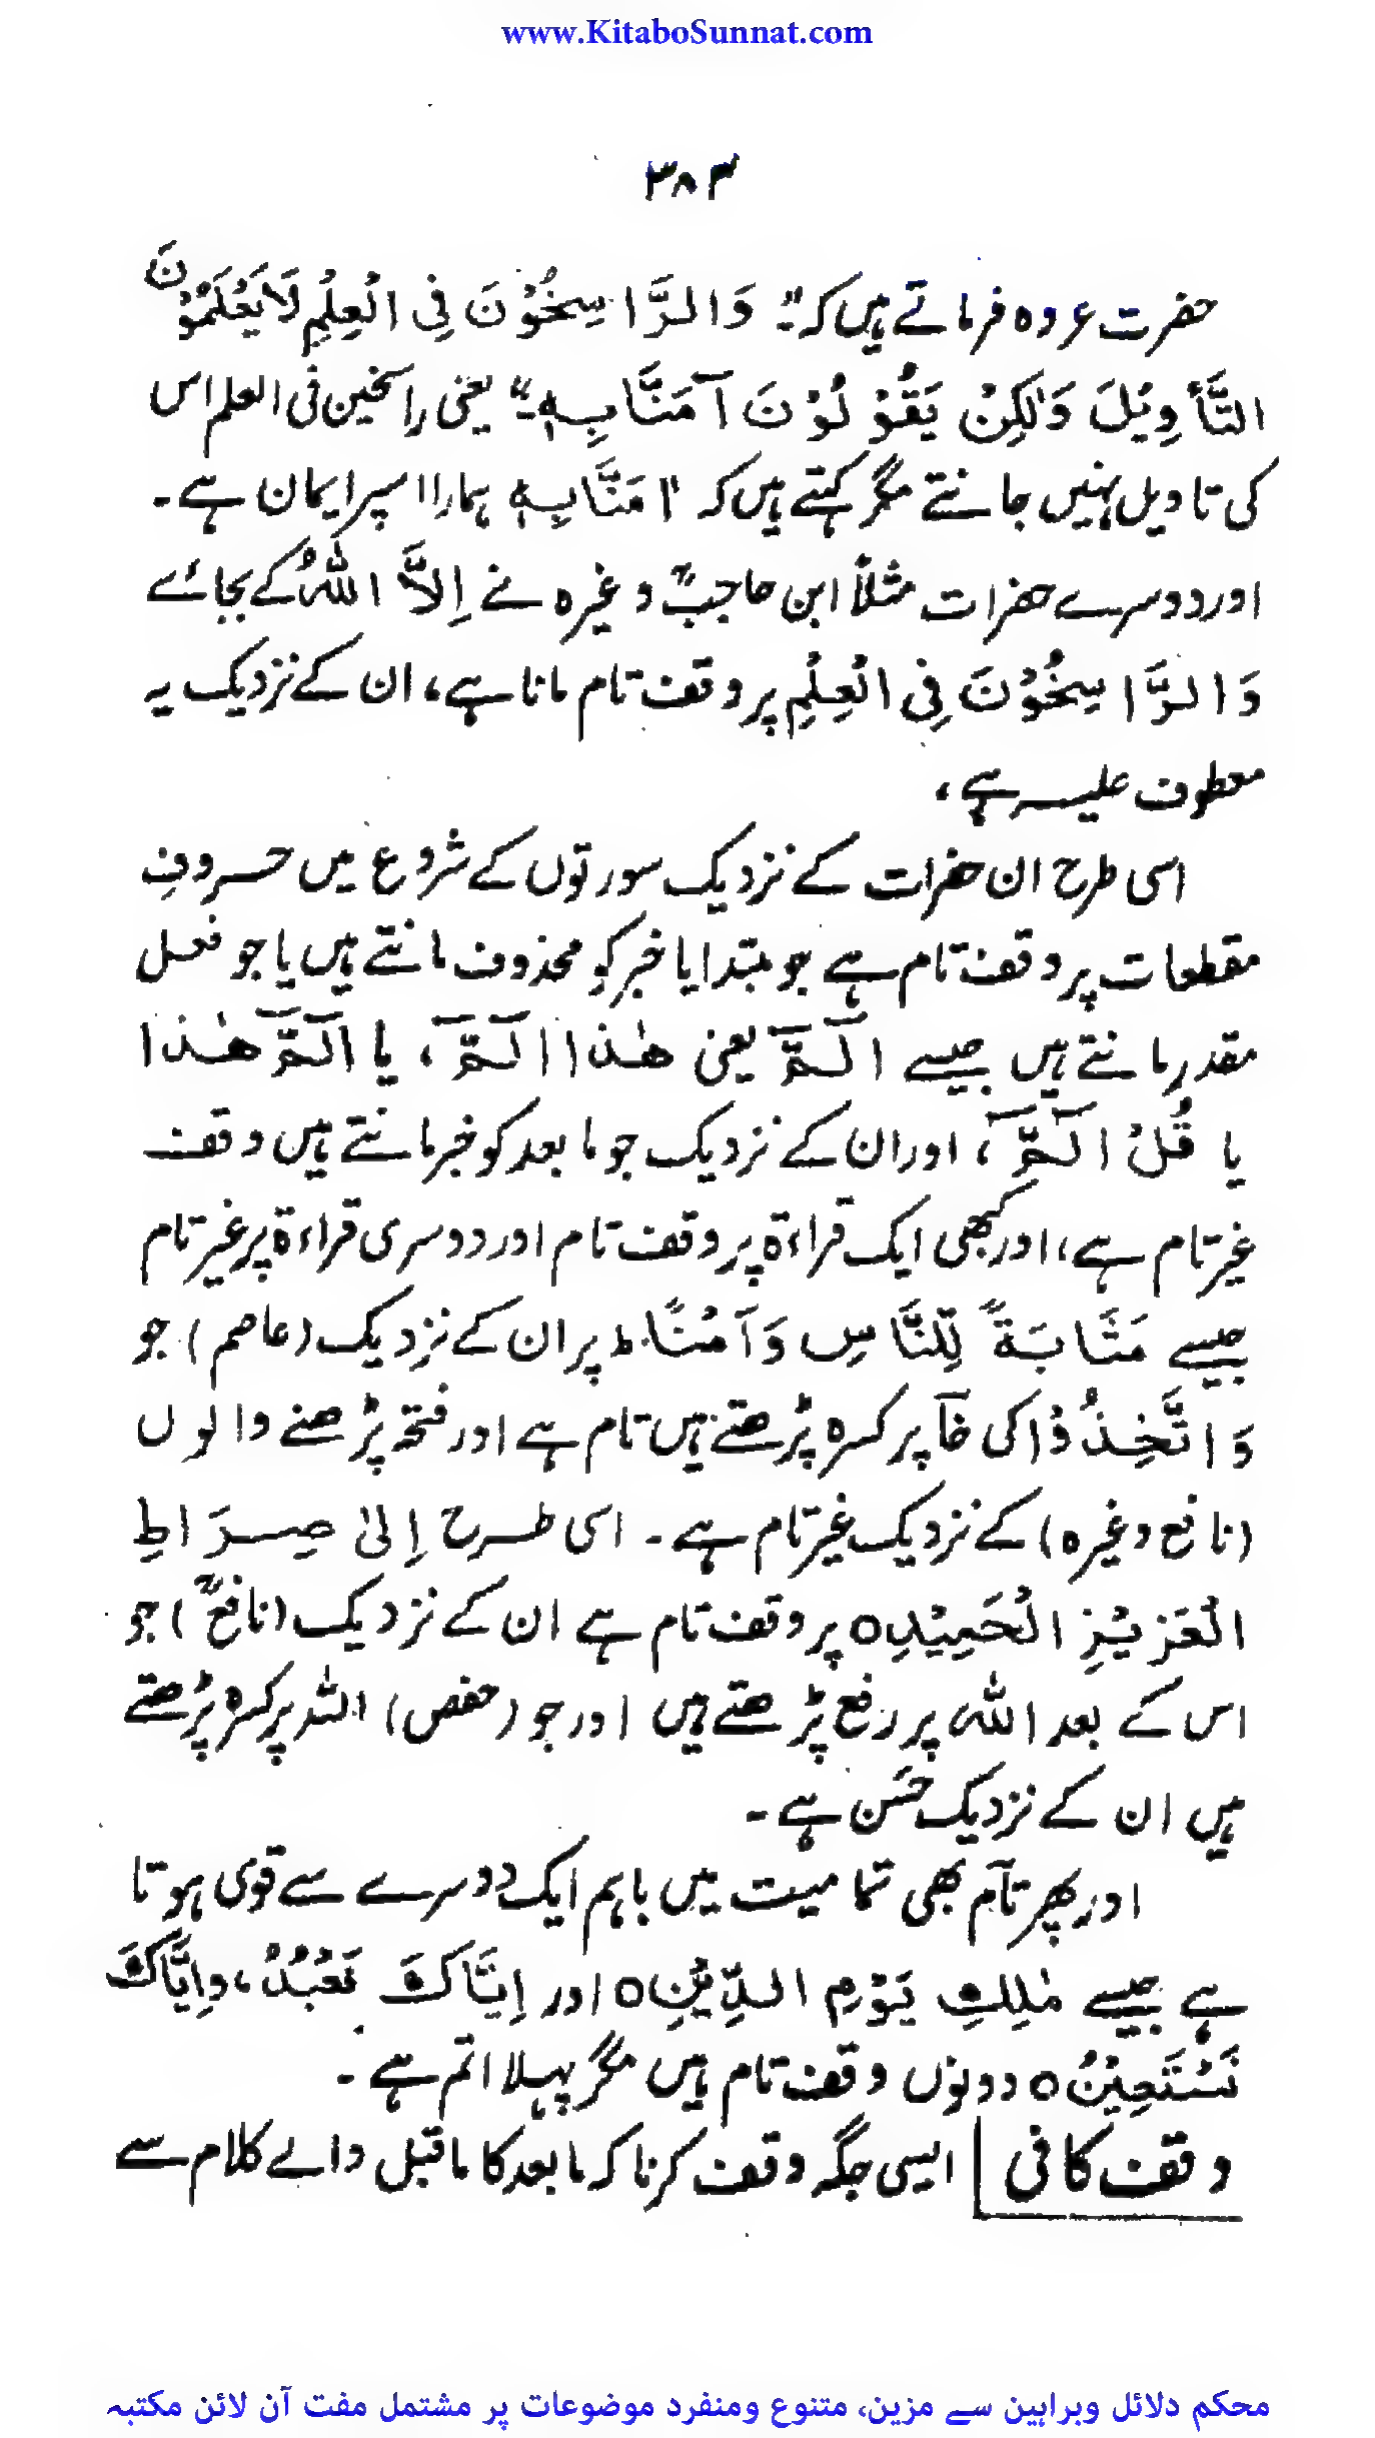 www.KitaboSunnat.com
۳۸۳
حضرت عروہ فرماتے ہیں کہ:" وَالرَّاسِخُوْنَ فِی الْعِلْمِ لَا یَعْلَمُوْنَ
التَّأْوِیْلَ وَلٰکِنْ یَقُوْلُوْنَ آمَنَّا بِہٖ۔" یعنی راسخین فی العلم اس
کی تاویل نہیں جانتے مگر کہتے ہیں کہ "اٰمَنَّا بِہٖ ہمارا اسپر ایمان ہے۔
اور دوسرے حضرات مثلاً ابن حاجبؒ وغیرہ نے اِلاَّ اللّٰہُ کے بجائے
وَالرَّاسِخُوْنَ فِی الْعِلْمِ پر وقف تام مانا ہے، ان کے نزدیک یہ
معطوف علیہ ہے،
اسی طرح ان حضرات کے نزدیک سورتوں کے شروع میں حروفِ
مقطعات پر وقف تام ہے جو مبتدا یا خبر کو محذوف مانتے ہیں یا جو فعل
مقدر مانتے ہیں جیسے الٓمّٓ یعنی ھٰذا الٓمّٓ، یا الٓمّٓ ھٰذا
یا قُلْ الٓمّٓ، اور ان کے نزدیک جو مابعد کو خبر مانتے ہیں وقف
غیر تام ہے، اور کبھی ایک قراءۃ پر وقف تام اور دوسری قراءۃ پر غیر تام
جیسے مَثَابَۃً لِّلنَّاسِ وَآمْنًا ط پر ان کے نزدیک (عاصم) جو
وَاتَّخِذُوْا کی خآ پر کسرہ پڑھتے ہیں تام ہے اور فتحہ پڑھنے والوں
(نافع وغیرہ) کے نزدیک غیر تام ہے۔ اسی طرح اِلیٰ صِرَاطِ
الْعَزِیْزِ الْحَمِیْدِ ○ پر وقف تام ہے ان کے نزدیک (نافعؒ) جو
اس کے بعد اللّٰہ پر رفع پڑھتے ہیں اور جو (حفص) اللّٰہ پر کسرہ پڑھتے
ہیں ان کے نزدیک حَسَن ہے۔
اور پھر تآم بھی تمامیت میں باہم ایک دوسرے سے قوی ہوتا
ہے جیسے مٰلِکِ یَوْمِ الدِّیْنِ ○ اور اِیَّاکَ نَعْبُدُ، وَاِیَّاکَ
نَسْتَعِیْنُ ○ دونوں وقف تام ہیں مگر پہلا اتم ہے۔
وقف کافی | ایسی جگہ وقف کرنا کہ مابعد کا ماقبل والے کلام سے
محکم دلائل وبراہین سے مزین، متنوع ومنفرد موضوعات پر مشتمل مفت آن لائن مکتبہ